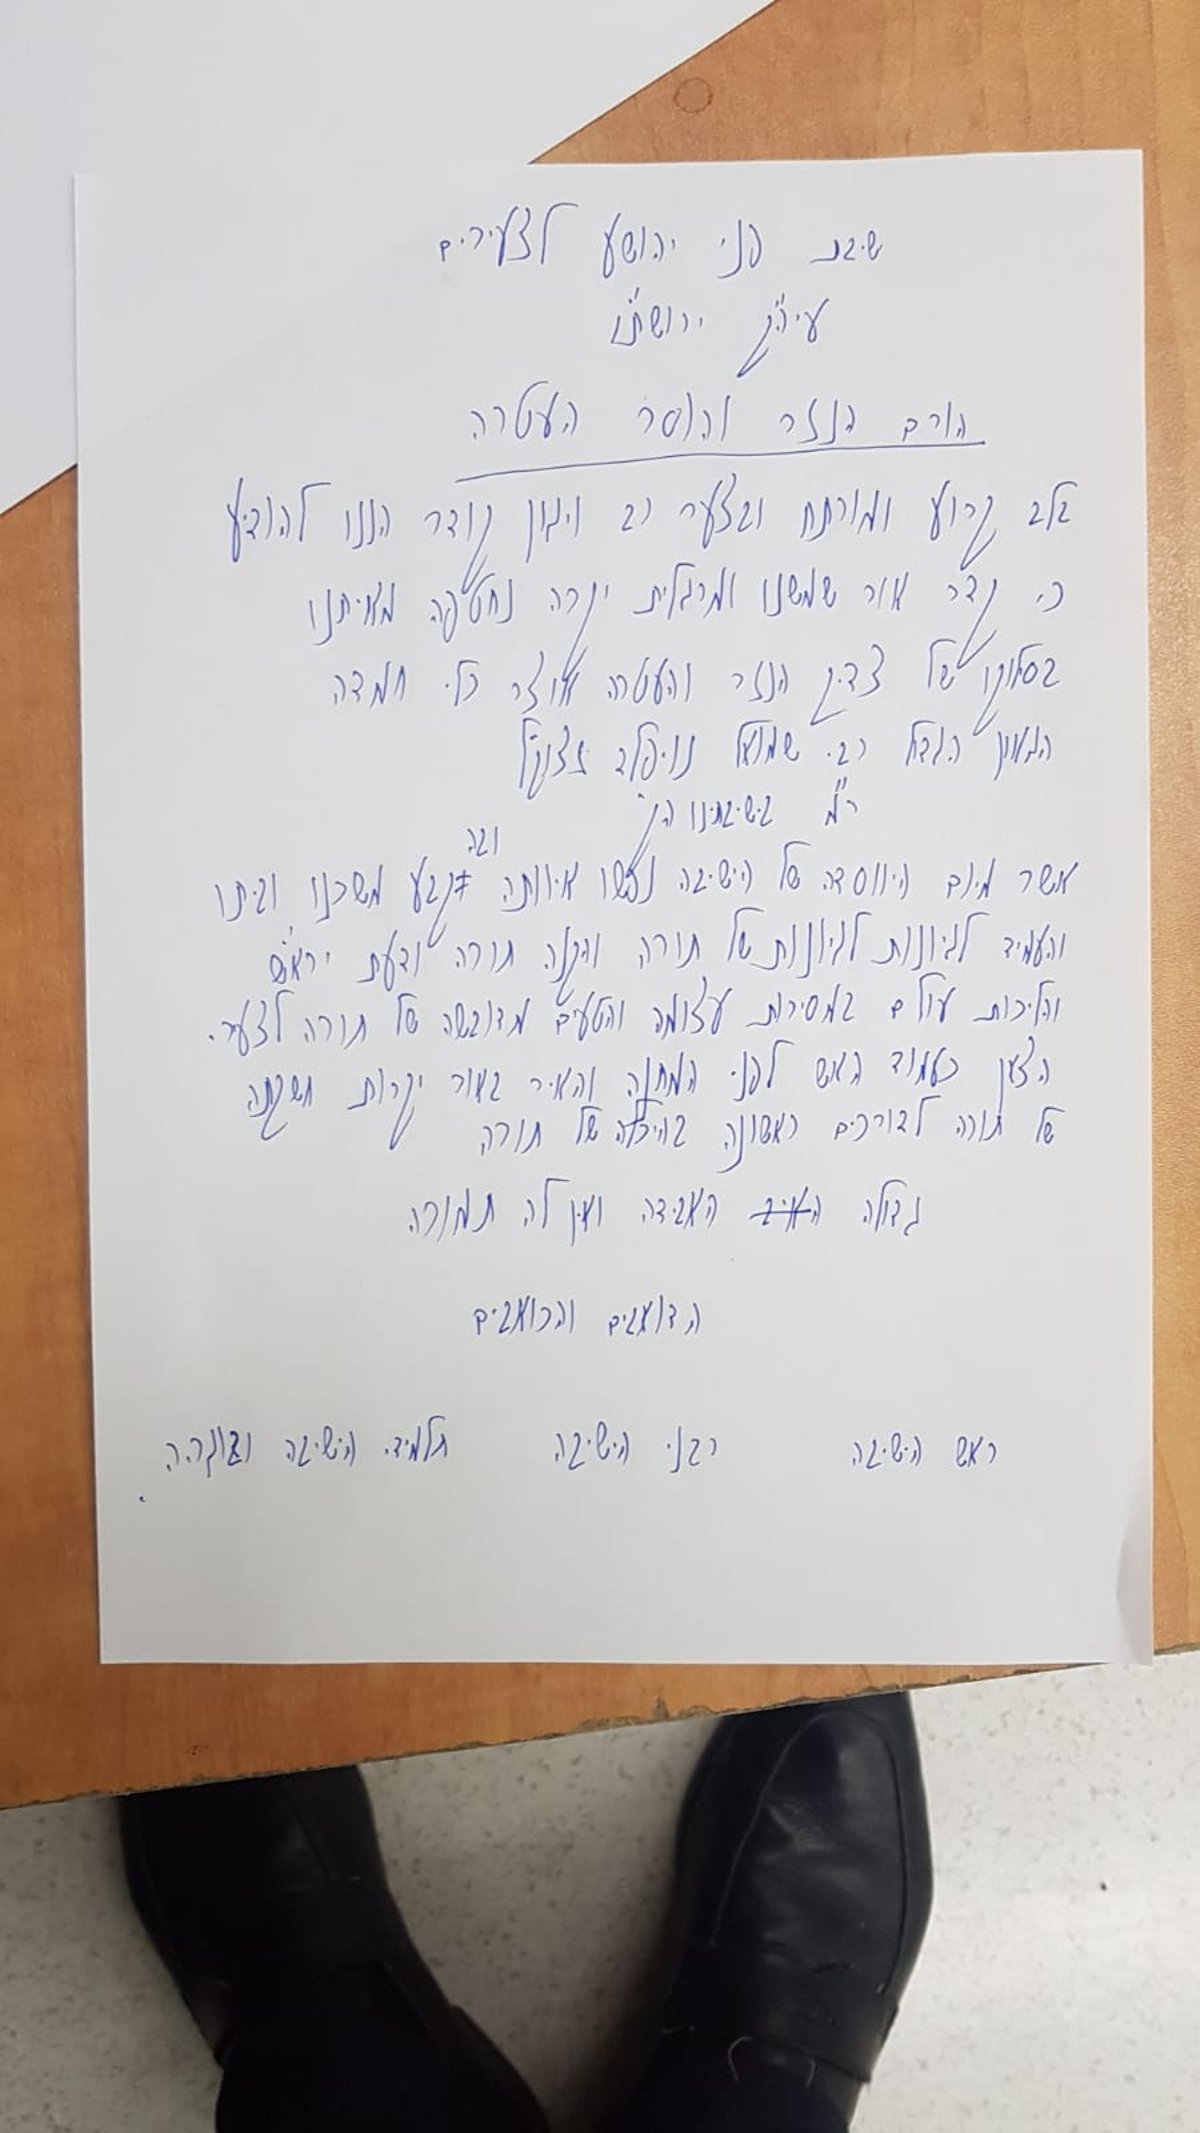 ישיבת פני יהושע לצעירים
עיה"ק ירושת"ו
הורם הנזר והוסר העטרה
בלב קרוע ומורתח ובצער רב ויגון קודר הננו להודיע
כי קדר אור שמשנו ומרגלית יקרה נחטפה מאיתנו
בסלוקו של צדיק הנזר והעטרה אוצר כלי חמדה
הגאון הגדול רבי שמואל נויפלד זצוק"ל
ר"מ בישיבתינו הק'
אשר מיום היווסדה של הישיבה נפשו איוותה ובה קבע משכנו וביתו
והעמיד לגיונות לגיונות של תורה והקנה תורה ודעת יראי"ש
והליכות עולם במסירות עצומה והטעים מדובשה של תורה לצעיר.
הצען כעמוד האש לפני המחנה והאיר באור יקרות חשקתה
של תורה לדורכים ראשונה בהיכלה של תורה
גדולה האבידה ואין לה תמורה
הדואבים והכואבים
ראש הישיבה רבני הישיבה תלמידי הישיבה ובוגריה